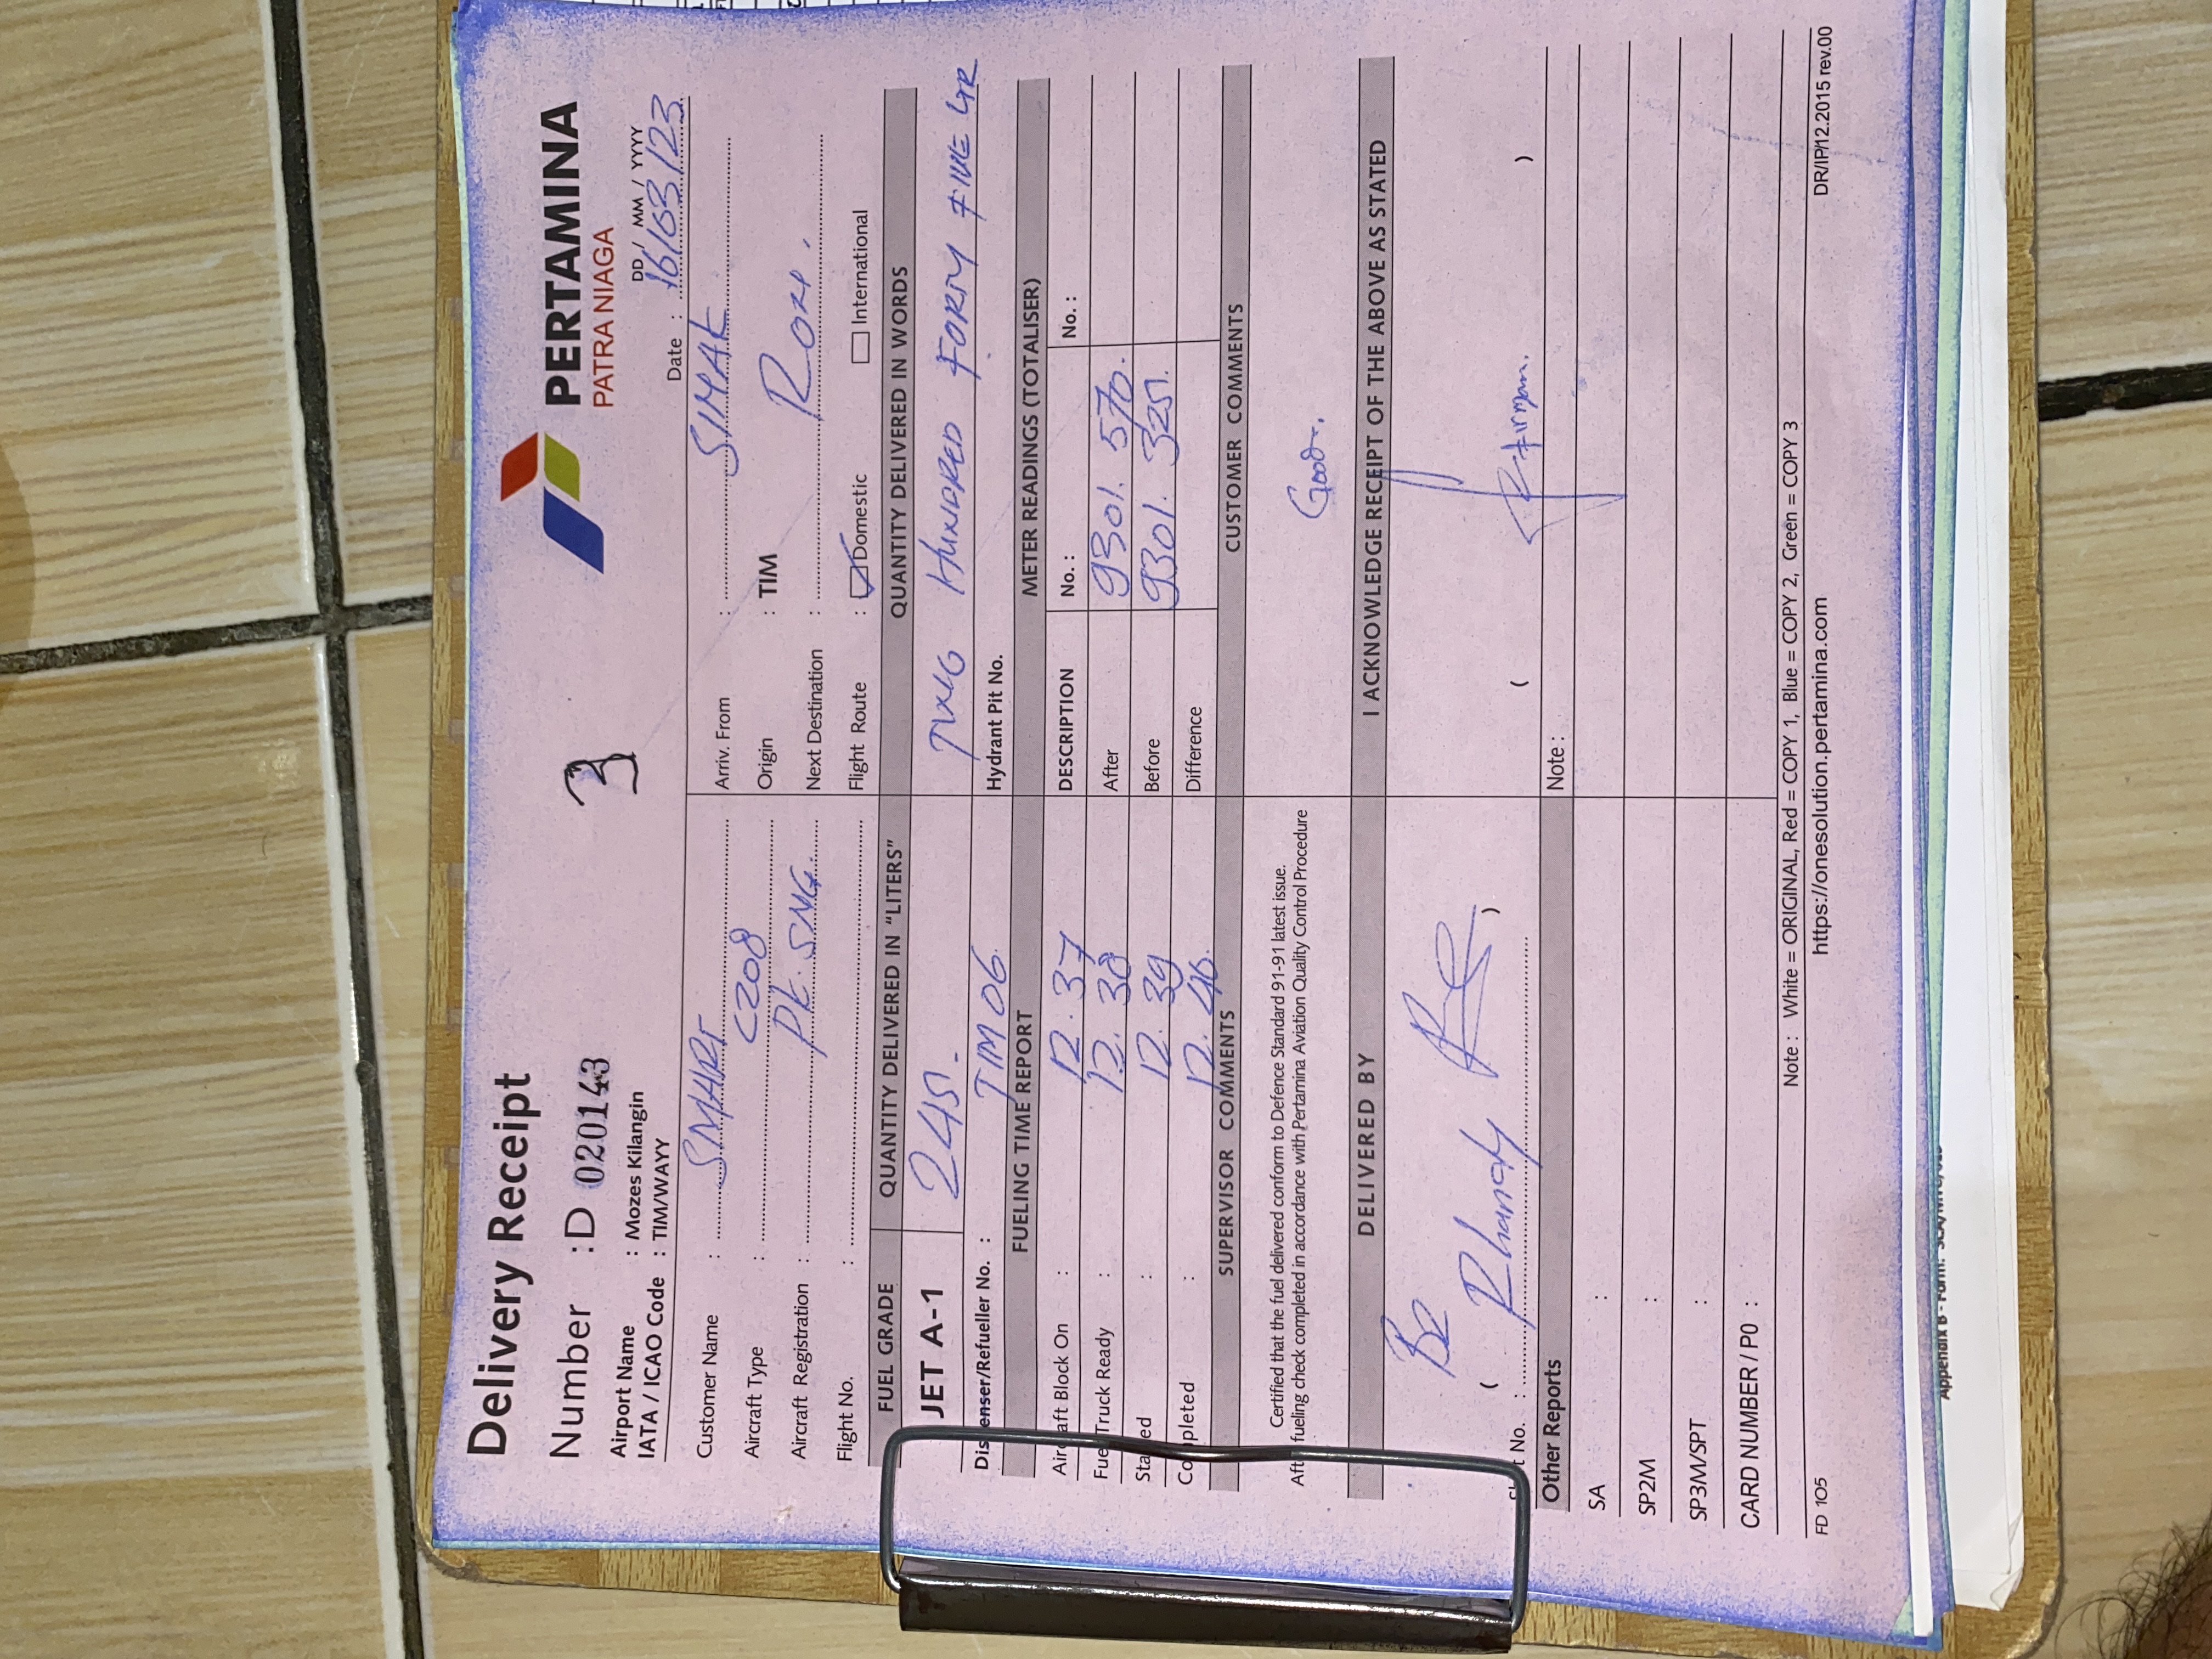 Delivery Receipt
PERTAMINA
PATRA NIAGA
Number : D 020143
3
Airport Name : Mozes Kilangin
IATA / ICAO Code : TIM/WAYY
DD / MM / YYYY
Date : 16/03/23
Customer Name : SMART
Arriv. From :
Aircraft Type : C208
Origin : TIM
Aircraft Registration : PK. SNG.
Next Destination :
Flight No. :
Flight Route : Domestic International
FUEL GRADE QUANTITY DELIVERED IN "LITERS" QUANTITY DELIVERED IN WORDS
JET A-1 245. HUNDRED FORTY FIVE LTR
Dispenser/Refueller No. : TIM 06
Hydrant Pit No.
FUELING TIME REPORT METER READINGS (TOTALISER)
DESCRIPTION No. : No. :
Aircraft Block On : 12. 37
After 9301. 570.
Fuel Truck Ready : 12. 38
Before 9301. 325.
Started : 12. 39
Difference
Completed : 12. 40.
SUPERVISOR COMMENTS CUSTOMER COMMENTS
Certified that the fuel delivered conform to Defence Standard 91-91 latest issue.
After fueling check completed in accordance with Pertamina Aviation Quality Control Procedure
Good.
DELIVERED BY I ACKNOWLEDGE RECEIPT OF THE ABOVE AS STATED
( Rhandy )
( Firman. )
No. :
Other Reports
Note :
SA :
SP2M :
SP3M/SPT :
CARD NUMBER / PO :
Note : White = ORIGINAL, Red = COPY 1, Blue = COPY 2, Green = COPY 3
FD 105
https://onesolution.pertamina.com
DR/IP/12.2015 rev.00